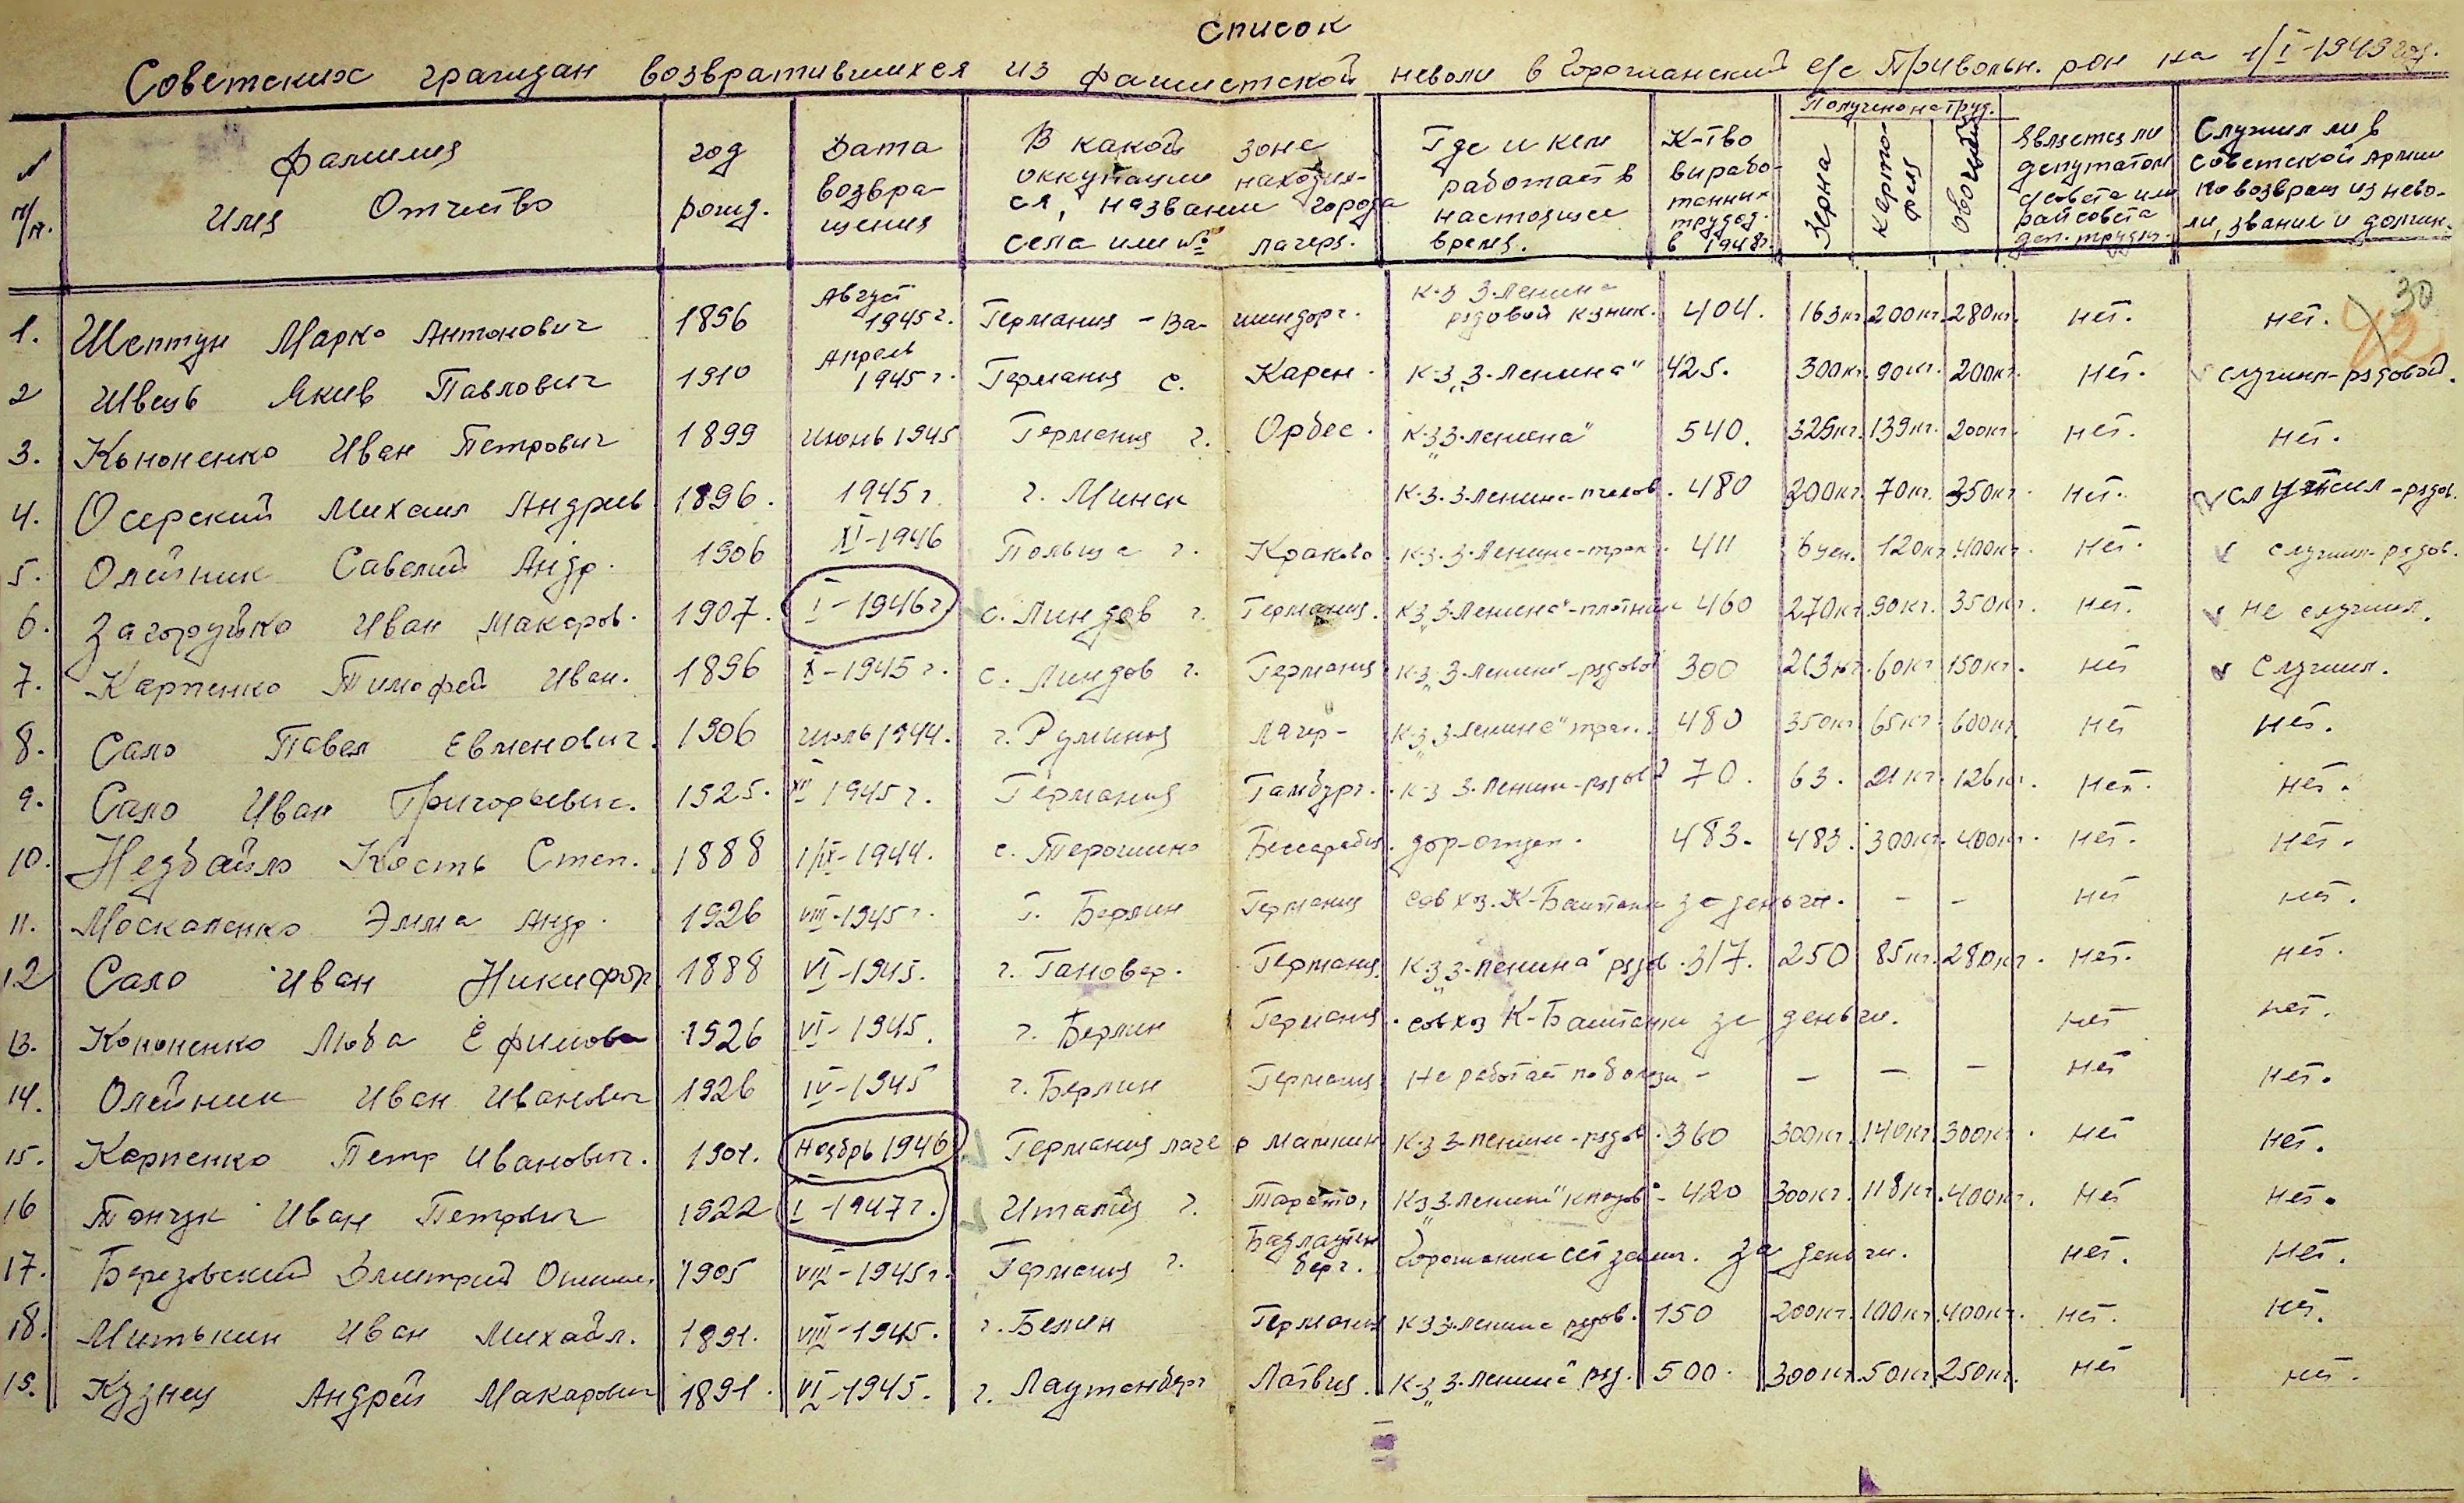 Список
Советских граждан возвратившихся из фашистской неволи в Горожанский с/с Привольн. р-он на 1/I-1949 год.
№ п/н. | Фамилия Имя Отчество | год рожд. | Дата возвращения | В какой зоне оккупации находился, название города села или № лагеря. | Где и кем работает в настоящее время. | К-тво выработанных трудод. в 1948 г. | Получено на труд. Зерна | Картофеля | Овощей | Является ли депутатом с/совета или райсовета деп. трудящ. | Служил ли в Советской Армии по возвращ из неволи, звание и должн.
30
42
1. Шептун Марко Антонович 1896 Август 1945 г. Германия – Ва- шингдорг. к-з З-Ленина рядовой к-зник. 404. 163кг. 200кг. 280кг. нет. нет.
2 Швець Якив Павлович 1910 Апрель 1945 г. Германия с. Карен. к-з „З-Ленина" 425. 300кг. 90кг. 200кг. нет. служил-рядовой.
3. Кононенко Иван Петрович 1899 Июнь 1945 Германия г. Орбес. к-з „З-Ленина" 540. 325кг. 139кг. 200кг. нет. нет.
4. Осерский Михаил Андрив 1896. 1945 г г. Минск к-з. З-Ленина-пчелов. 480 200кг. 70кг. 350кг. нет. служил-рядов.
5. Олейник Савелий Андр. 1906 XI-1946 Польща г. Краково. к-з. З-Ленина-трак. 411 6 цен. 120кг. 400кг. нет. служил-рядов.
6. Загоруйко Иван Макаров. 1907. I-1946 г. с. Линдов г. Германия. к-з „З-Ленина"-плотник 460 270кг. 90кг. 350кг. нет. не служил.
7. Карпенко Тимофей Иван. 1896 X-1945 г. с. Линдов г. Германия к-з „З-Ленина"-рядовой 300 213кг. 60кг 150кг. нет служил.
8. Сало Павел Евменович. 1906 Июль 1944. г. Румыния Лагер- к-з „З-Ленина" трак. 480 350кг 65кг. 600кг. нет нет.
9. Сало Иван Григорьевич. 1925. XII 1945 г. Германия Гамбург. к-з З-Ленина-рядовой 70. 63. 21кг. 126кг. нет. нет.
10. Недбайло Кость Степ. 1888 1/IX-1944. с. Терошино Бессарабия. дор-отдел. 483. 483. 300кг. 400кг. нет. нет.
11. Москаленко Эмма Андр. 1926 VIII-1945 г. г. Берлин Германия совхоз. К-Баштанка за деньги. – – нет нет.
12 Сало Иван Никифор 1888 VI-1945. г. Гановер. Германия. к-з „З-Ленина" рядов. 317. 250 85кг. 280кг. нет. нет.
13. Кононенко Люба Ефимова 1926 VI-1945. г. Берлин Германия. совхоз К-Баштанка за деньги. нет нет.
14. Олейник Иван Иванович 1926 IV-1945 г. Берлин Германия Не работает по болезни – – – – нет нет.
15. Карпенко Петр Иванович. 1901. Ноябрь 1946 Германия лагер Машкин к-з З-Ленина-рядов. 360 300кг. 140кг. 300кг. нет нет.
16 Тончук Иван Петрович 1922 I-1947 г. Италия г. Таранто, к-з „З-Ленина" кладов- 420 300кг. 118кг. 400кг. нет нет.
17. Березовский Дмитрий 1905 VIII-1945 г. Германия г. Горожанка за деньги. нет. нет.
18. Митькин Иван Михайл. 1891. VIII-1945. г. Белин Германия к-з З-Ленина рядов. 150 200кг. 100кг. 400кг. нет. нет.
19. Кузнец Андрей Макарович 1891. VI-1945. г. Лаутенберг Латвия. к-з „З-Ленина" ряд. 500. 300кг. 50кг. 250кг. нет нет.